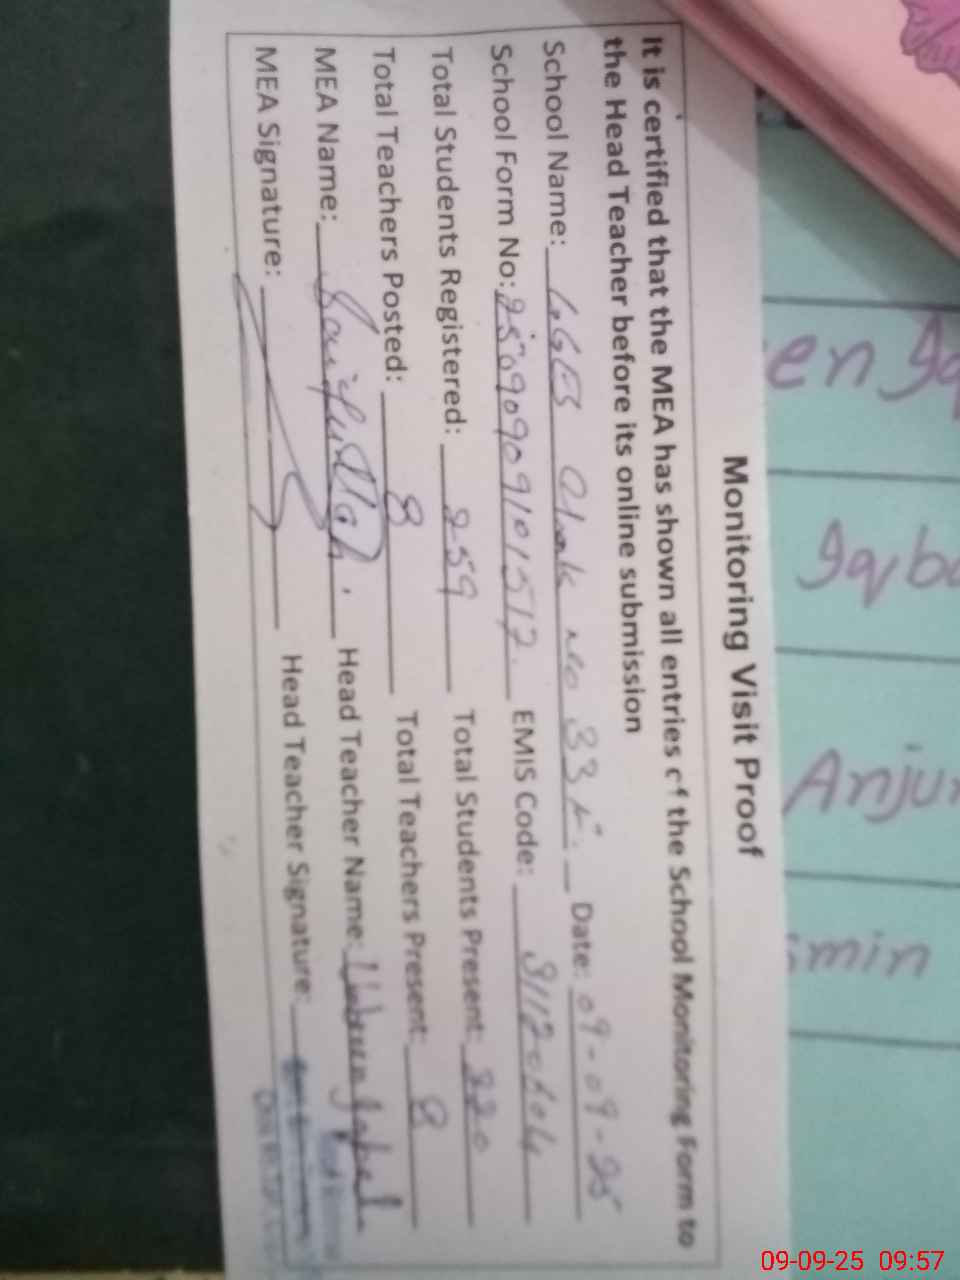 Monitoring Visit Proof
It is certified that the MEA has shown all entries of the School Monitoring Form to
the Head Teacher before its online submission
School Name: GGES Chak No 33 K. Date: 09-09-25
School Form No: 25090909101517. EMIS Code:
Total Students Registered: 259 Total Students Present: 220
Total Teachers Posted: 8 Total Teachers Present: 8
MEA Name: Saifullah. Head Teacher Name:
MEA Signature: Head Teacher Signature:
en Iq
Iqba
Anju
smin
09-09-25 09:57